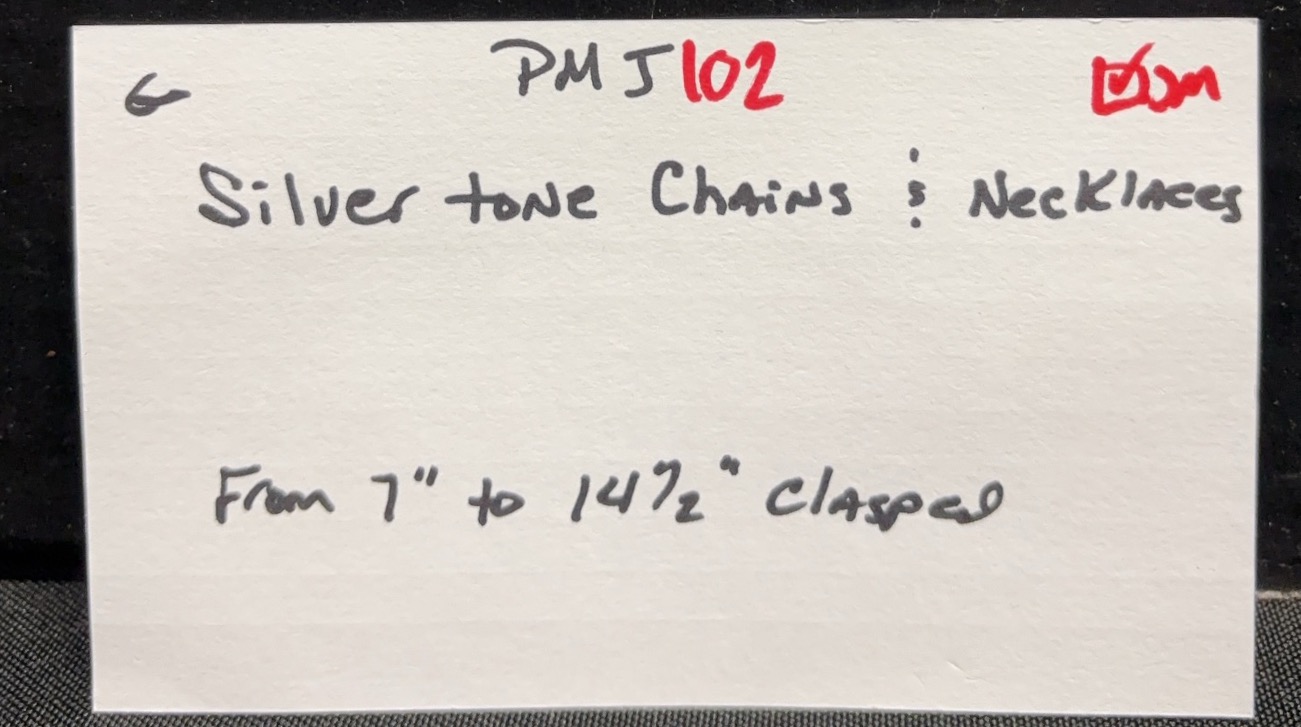 G PMJ102 ☑Jm
Silver tone Chains & Necklaces
From 7" to 14 1/2" Clasped